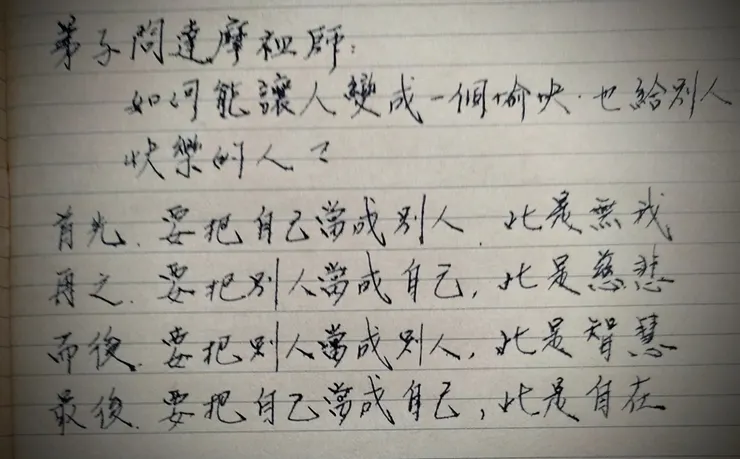 弟子問達摩祖師：
如何能讓人變成一個愉快．也給別人
快樂的人？
首先．要把自己當成別人．此是無我
再之．要把別人當成自己，此是慈悲
而後．要把別人當成別人，此是智慧
最後．要把自己當成自己，此是自在